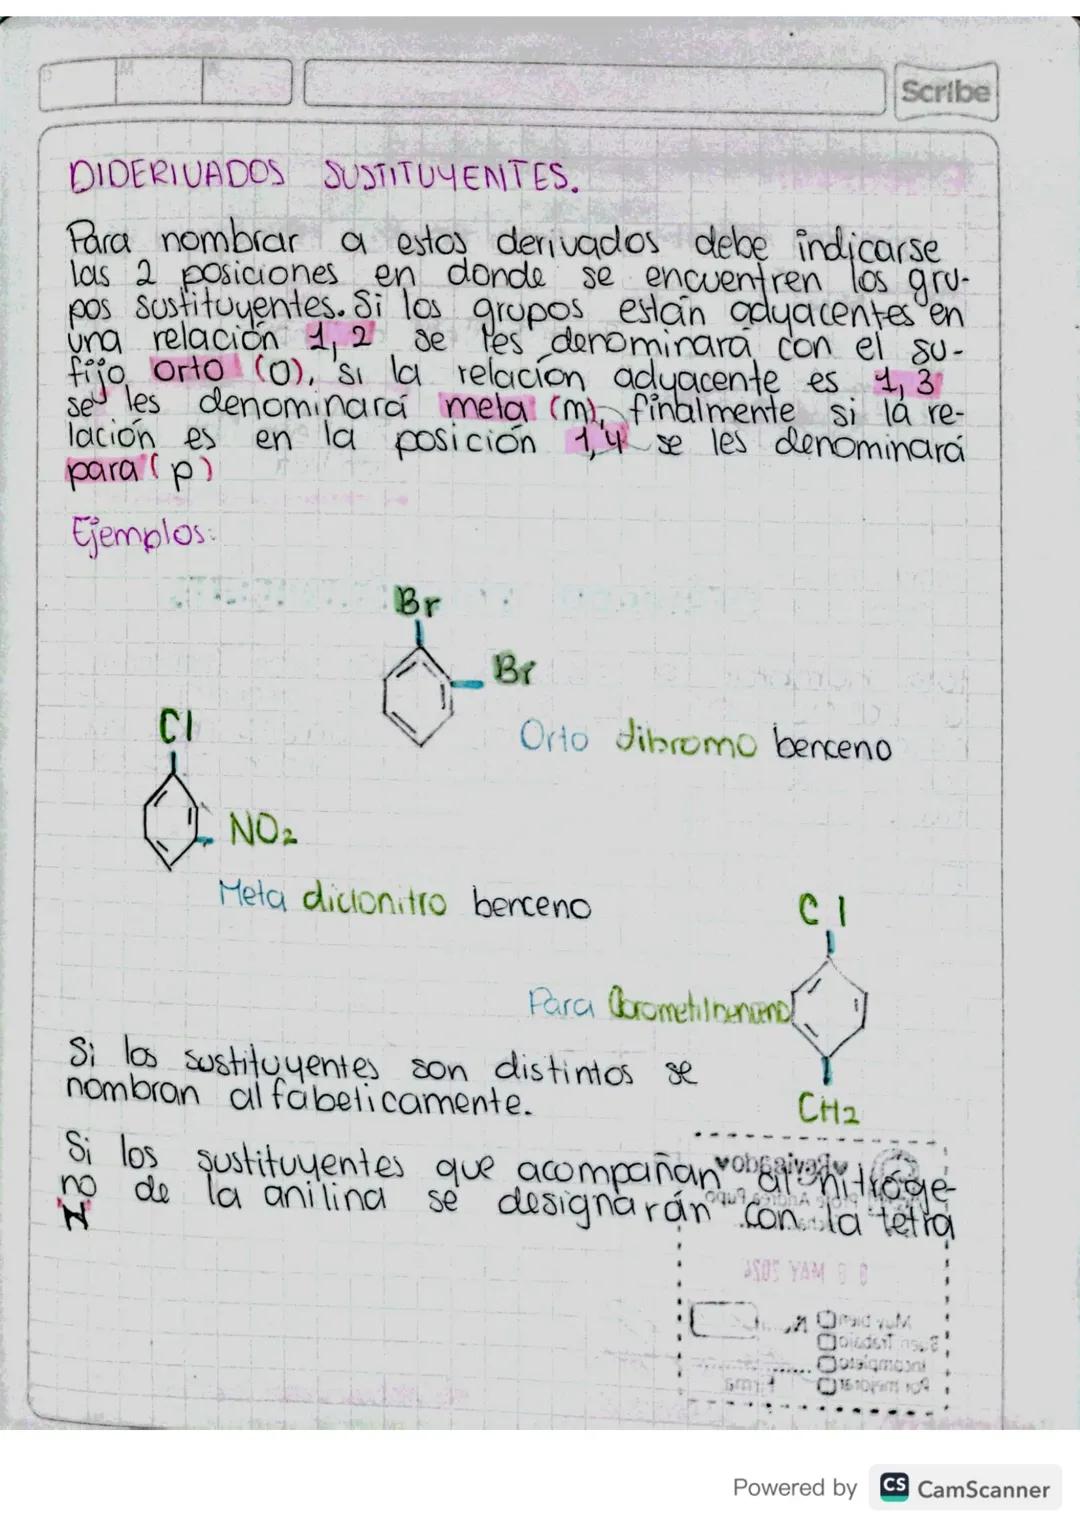 Scribe
DIDERIVADOS SUSTITUYENTES.
Para nombrar a estos derivados debe indicarse
las 2 posiciones en donde se encuentren los gru-
pos sustituyentes. Si los grupos están adyacentes en
una relación 1,2 se les denominará con el su-
fijo orto (o), si la relación adyacente es 1,3
se les denominará meta (m), finalmente si la re-
lación es en la posición 1,4 se les denominará
para (p)
Ejemplos:
Br
Br
Orto dibromo benceno
Cl
NO2
Meta diclonitro benceno
Cl
Para Clorometilbenceno
CH2
Si los sustituyentes son distintos se
nombran alfabeticamente.
Si los sustituyentes que acompañan al nitroge-
no de la anilina se designarán con la tetra
N
08 MAY 2024
Muy bien
Buen Trabajo
Incompleto
Por mejorar
Firma
Powered by CS CamScanner